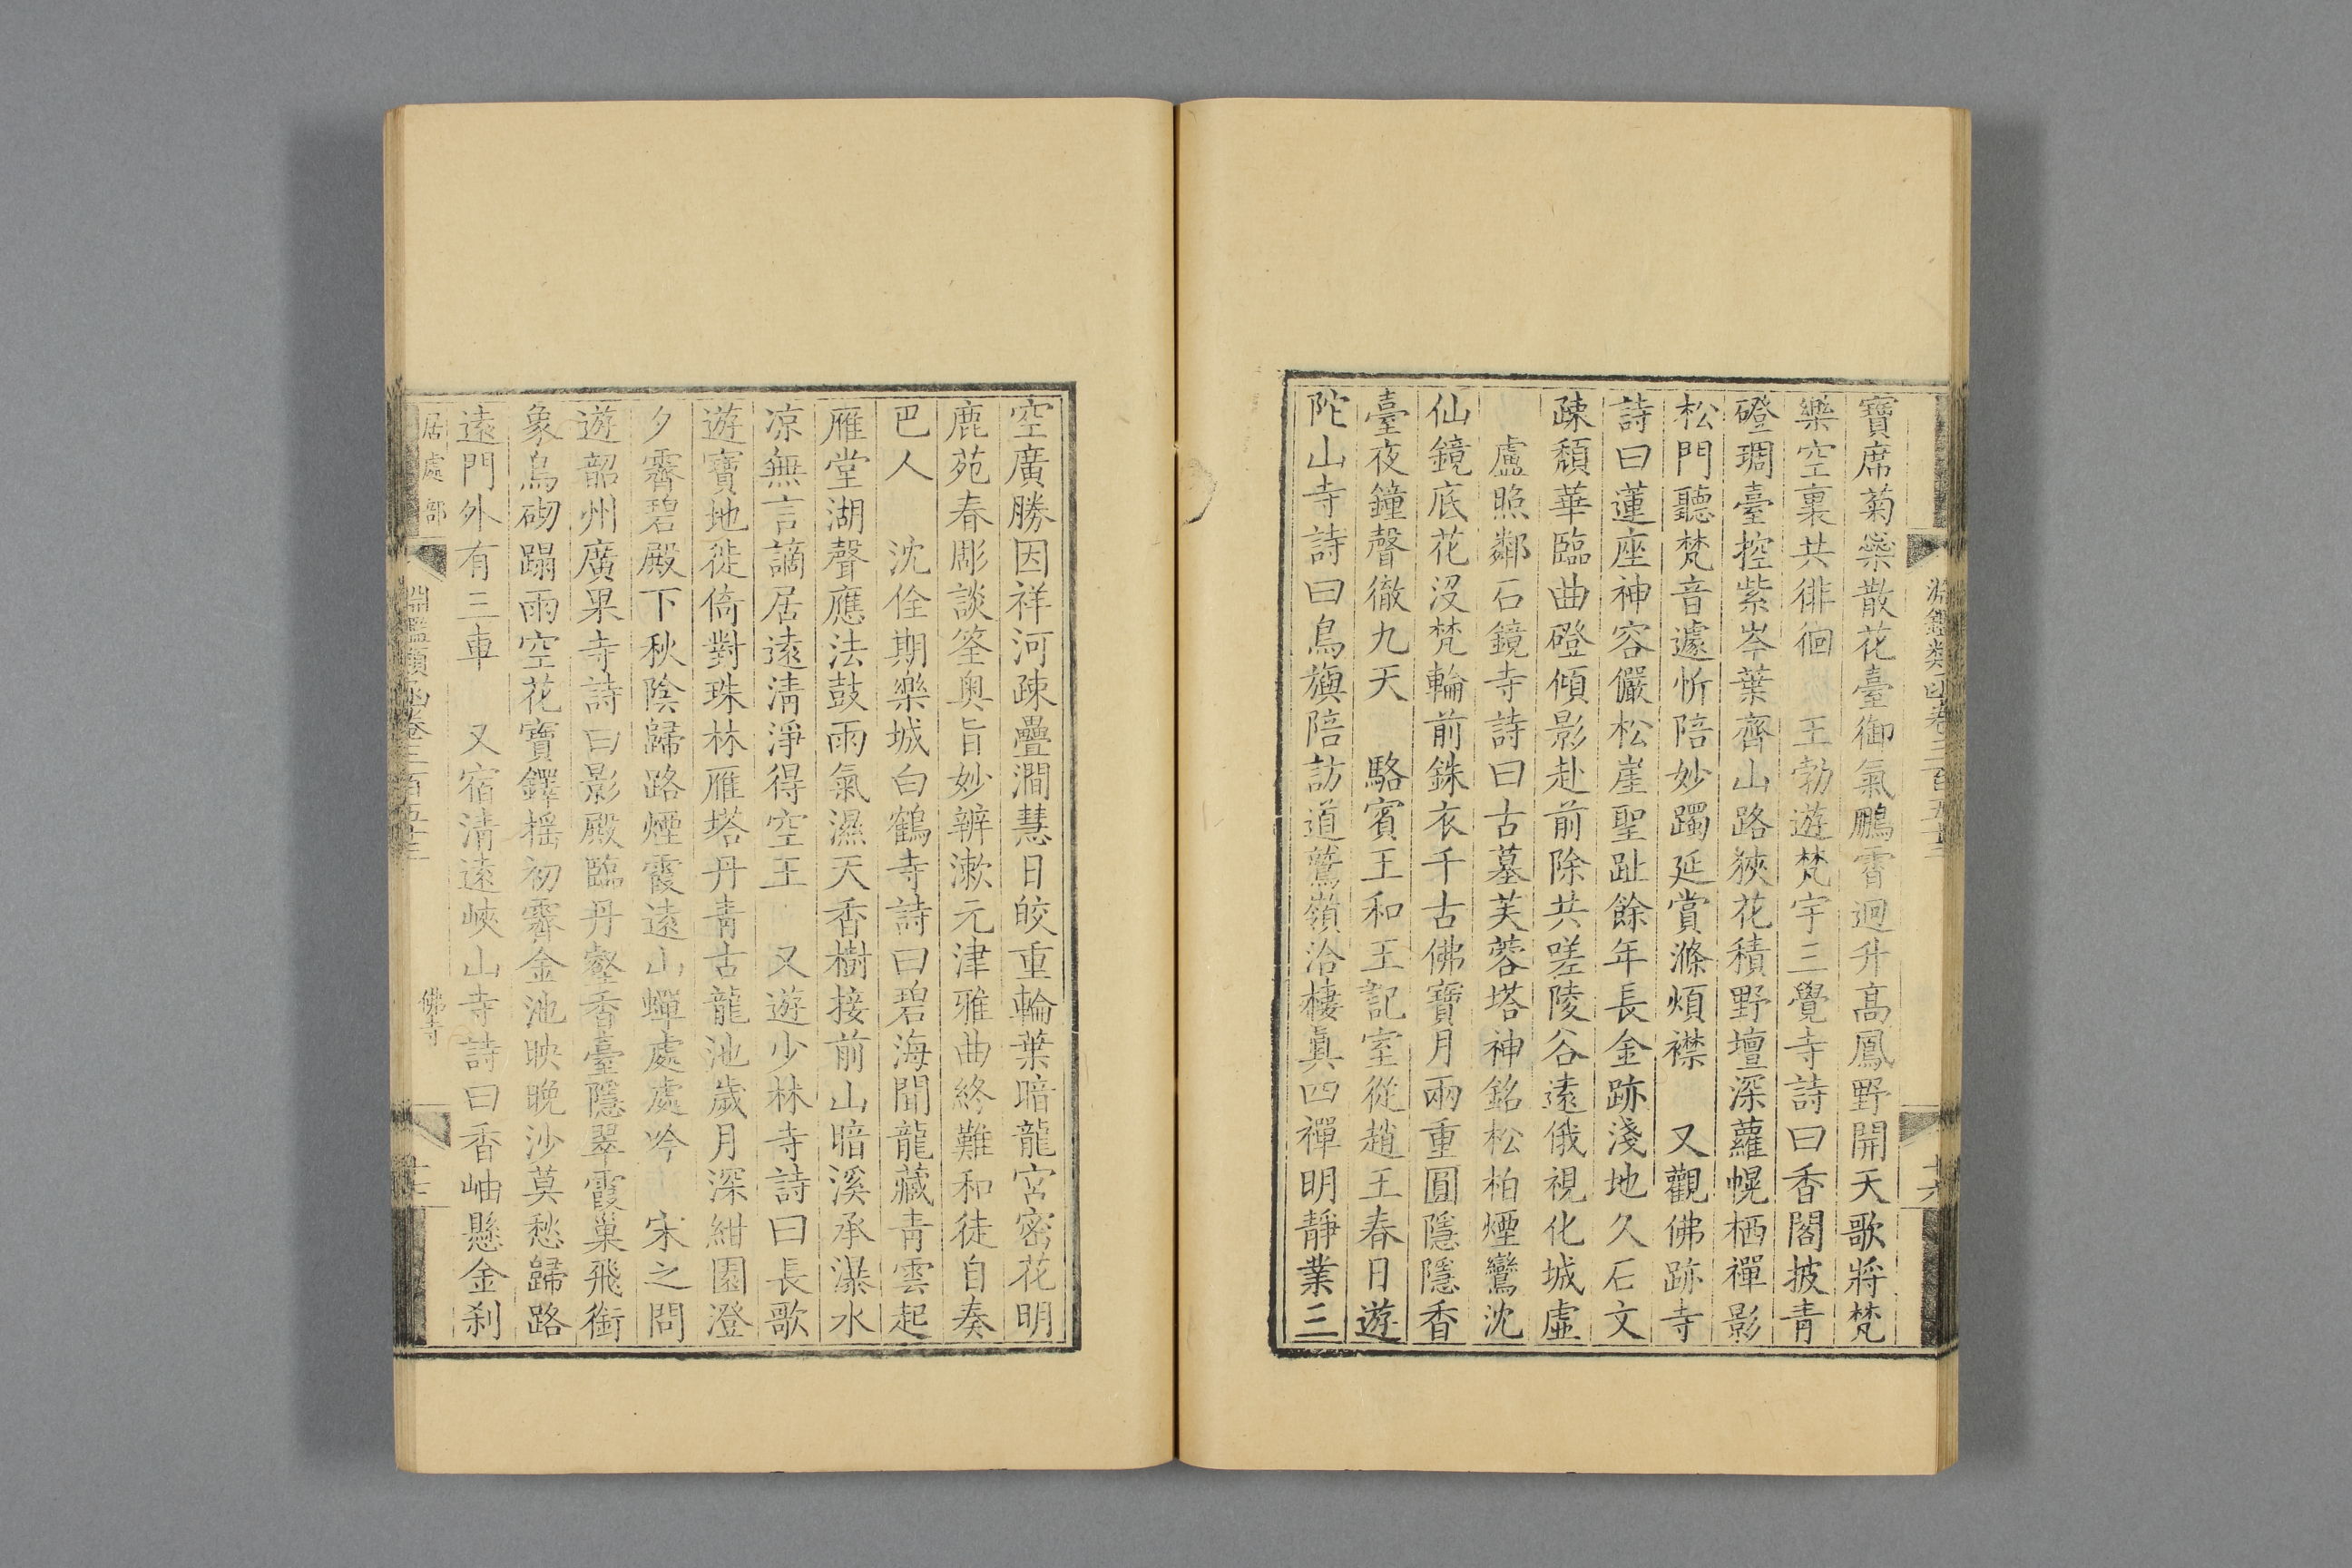 寶席菊蘂散花臺御氣鵬霄迥升高鳳野開天歌將梵
樂空裏共徘徊　王勃遊梵宇三覺寺詩曰香閣披青
磴琱臺控紫岑葉齊山路狹花積野壇深蘿幌栖禪影
松門聽梵音遽忻陪妙躅延賞滌煩襟　又觀佛跡寺
詩曰蓮座神容儼松崖聖趾餘年長金跡淺地久石文
疎頹華臨曲磴傾影赴前除共嗟陵谷遠俄視化城虛
盧照鄰石鏡寺詩曰古墓芙蓉塔神銘松柏煙鸞沈
仙鏡底花沒梵輪前銖衣千古佛寶月兩重圓隱隱香
臺夜鐘聲徹九天　駱賓王和王記室從趙王春日遊
陀山寺詩曰鳥旟陪訪道鷲嶺洽棲眞四禪明靜業三
空廣勝因祥河疎疊澗慧日皎重輪葉暗龍宮密花明
鹿苑春彫談筌奥旨妙辨漱元津雅曲終難和徒自奏
巴人　沈佺期樂城白鶴寺詩曰碧海開龍藏青雲起
雁堂湖聲應法鼓雨氣濕天香樹接前山暗溪承瀑水
凉無言謫居遠清淨得空王　又遊少林寺詩曰長歌
遊寶地徙倚對珠林雁塔丹青古龍池歲月深紺園澄
夕霽碧殿下秋陰歸路煙霞遠山蟬處處吟　宋之問
遊韶州廣果寺詩曰影殿臨丹壑香臺隱翠霞巢飛銜
象鳥砌蹋雨空花寶鐸搖初霽金池映晚沙莫愁歸路
遠門外有三車　又宿清遠峽山寺詩曰香岫懸金刹
居處部
淵鑑類函卷三百五十三
佛寺